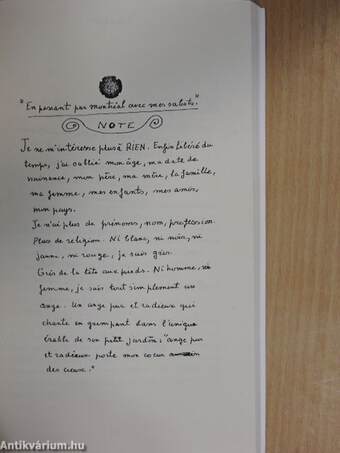 "En passant par montréal avec mes sabots."
NOTE
Je ne m'intéresse plus à RIEN. Enfin libéré du
temps, j'ai oublié mon âge, ma date de
naissance, mon père, ma mère, la famille,
ma femme, mes enfants, mes amis,
mon pays.
Je n'ai plus de prénoms, nom, profession.
Plus de religion. Ni blanc, ni noir, ni
jaune, ni rouge, je suis gris.
Gris de la tête aux pieds. Ni homme, ni
femme, je suis tout simplement un
ange. Un ange pur et radieux qui
chante en grimpant dans l'unique
érable de son petit jardin: "ange pur
et radieux porte mon coeur au sein
des cieux."
Antikvárium.hu